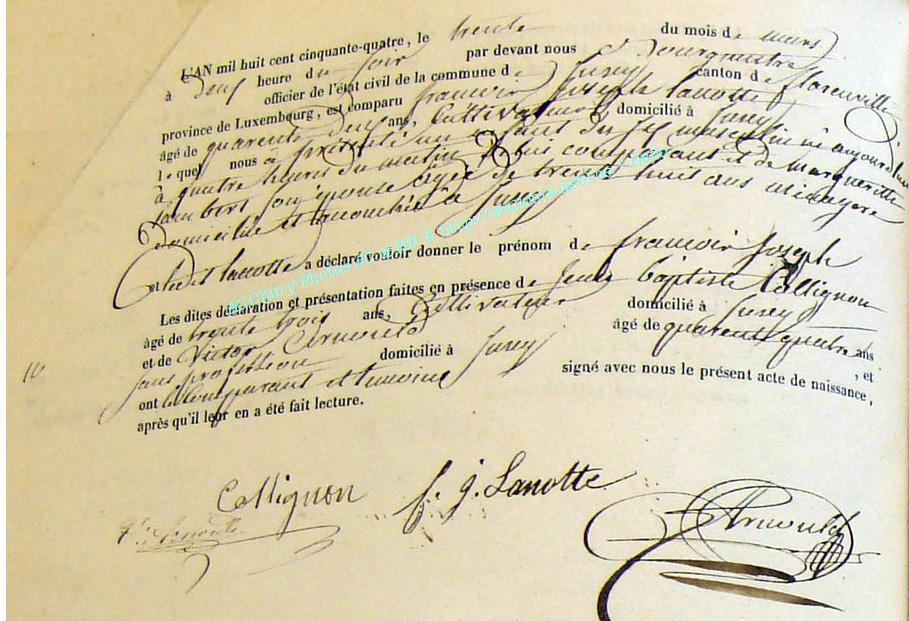 L'AN mil huit cent cinquante-quatre, le trente du mois de mars
à deux heure du soir par devant nous
officier de l'état civil de la commune de Jusey canton de florenville
province de Luxembourg, est comparu francoir Joseph lanotte
âgé de quarente deux ans, Cultivateur domicilié à Jusey
lequel nous a présenté un enfant du sexe masculin né aujourdhui
à quatre heures du matin de lui comparant et de Margueritte
lambert son épouse agée de trente huit ans ménagere
domiciliée et accouchée à Jusey
Ledit lanotte a déclaré vouloir donner le prénom de francoir Joseph
Les dites déclaration et présentation faites en présence de Jean baptiste Collignon
âgé de trente trois ans, Cultivateur domicilié à Jusey
et de Victor Arnould âgé de quarente quatre ans
sans profession domicilié à Jusey , et
ont le Comparant et temoins signé avec nous le présent acte de naissance,
après qu'il leur en a été fait lecture.
10
Collignon f. j. Lanotte Arnould